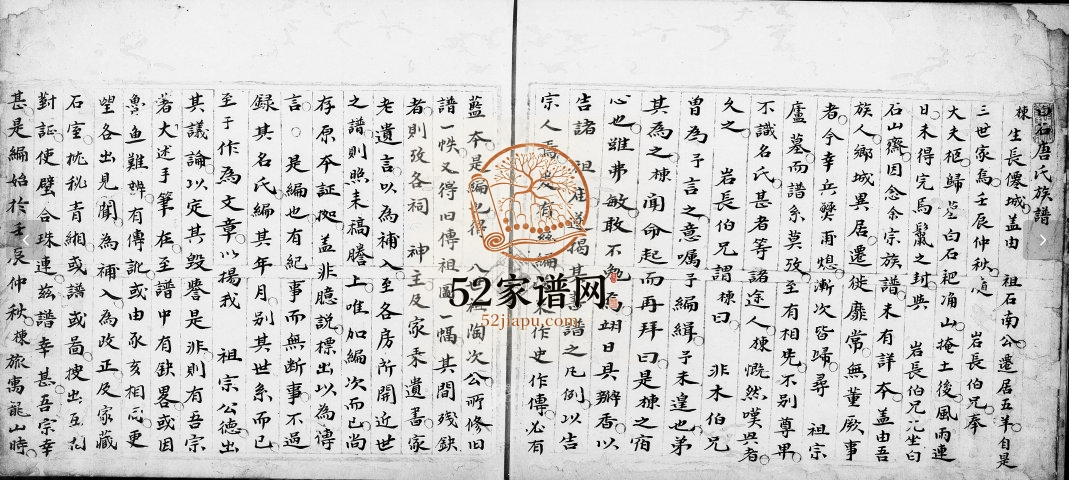 白石唐氏族譜
棟生長僊城蓋由 祖石南公遷居五羊自是
三世家焉壬辰仲秋 岩長伯兄奉
大夫柩歸 白石 涌山掩土後風雨連
日未得完馬鬣之封與 岩長伯兄 坐白
石山齋因念余宗族譜未有詳本蓋由吾
族人鄉城異居遷徙靡常無董厥事
者今幸兵 雨熄漸次皆歸尋 祖宗
廬墓而譜系莫攷至有相 不別尊卑
不識名氏甚者等諸途人棟慨然嘆 者
久之 岩長伯兄謂棟曰 非木伯兄
曽為予言之意囑予編緝予未遑也弟
其為之棟聞命起而再拜曰是棟之宿
心也雖弗敏敢不勉 翊日具辦香以
告諸 祖 遂揭 譜之凡例以告
宗人焉 作史作傳必有
藍本是編也得 八世祖陶次公所修旧
譜一帙又得旧傳祖圖一幅其間殘缺
者則攷各祠 神主及家乘遺書家
老遺言以為補入至各房所開近世
之譜則照来稿謄上唯加編次而已尚
存原本証拠蓋非臆説標出以為傳
言 是編也有紀事而無断事不過
録其名氏編其年月别其世系而已
至于作為文章以揚我 祖宗公徳出
其議論以定其毀譽是非則有吾宗
著大述手筆在至譜中有缺畧或因
魯魚難辨有傳訛或由豕亥相 更
望各出見聞為補入為攷正及家藏
石室枕秘青緗或譜或啚搜出互
對証使壁合珠連茲譜幸甚吾宗幸
甚是編始於壬辰仲秋棟旅寓龍山時
52家谱网
52jiapu.com